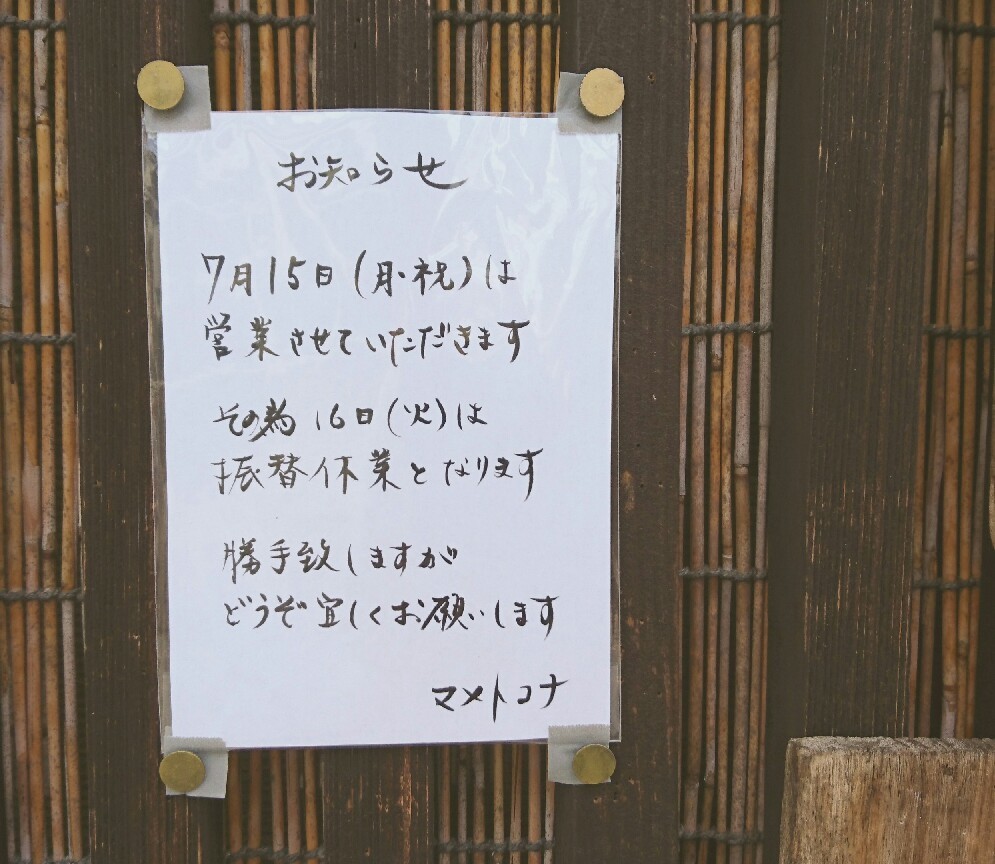 お知らせ
7月15日(月・祝)は
営業させていただきます
その為 16日(火)は
振替休業となります
勝手致しますが
どうぞ宜しくお願いします
マメトコナ